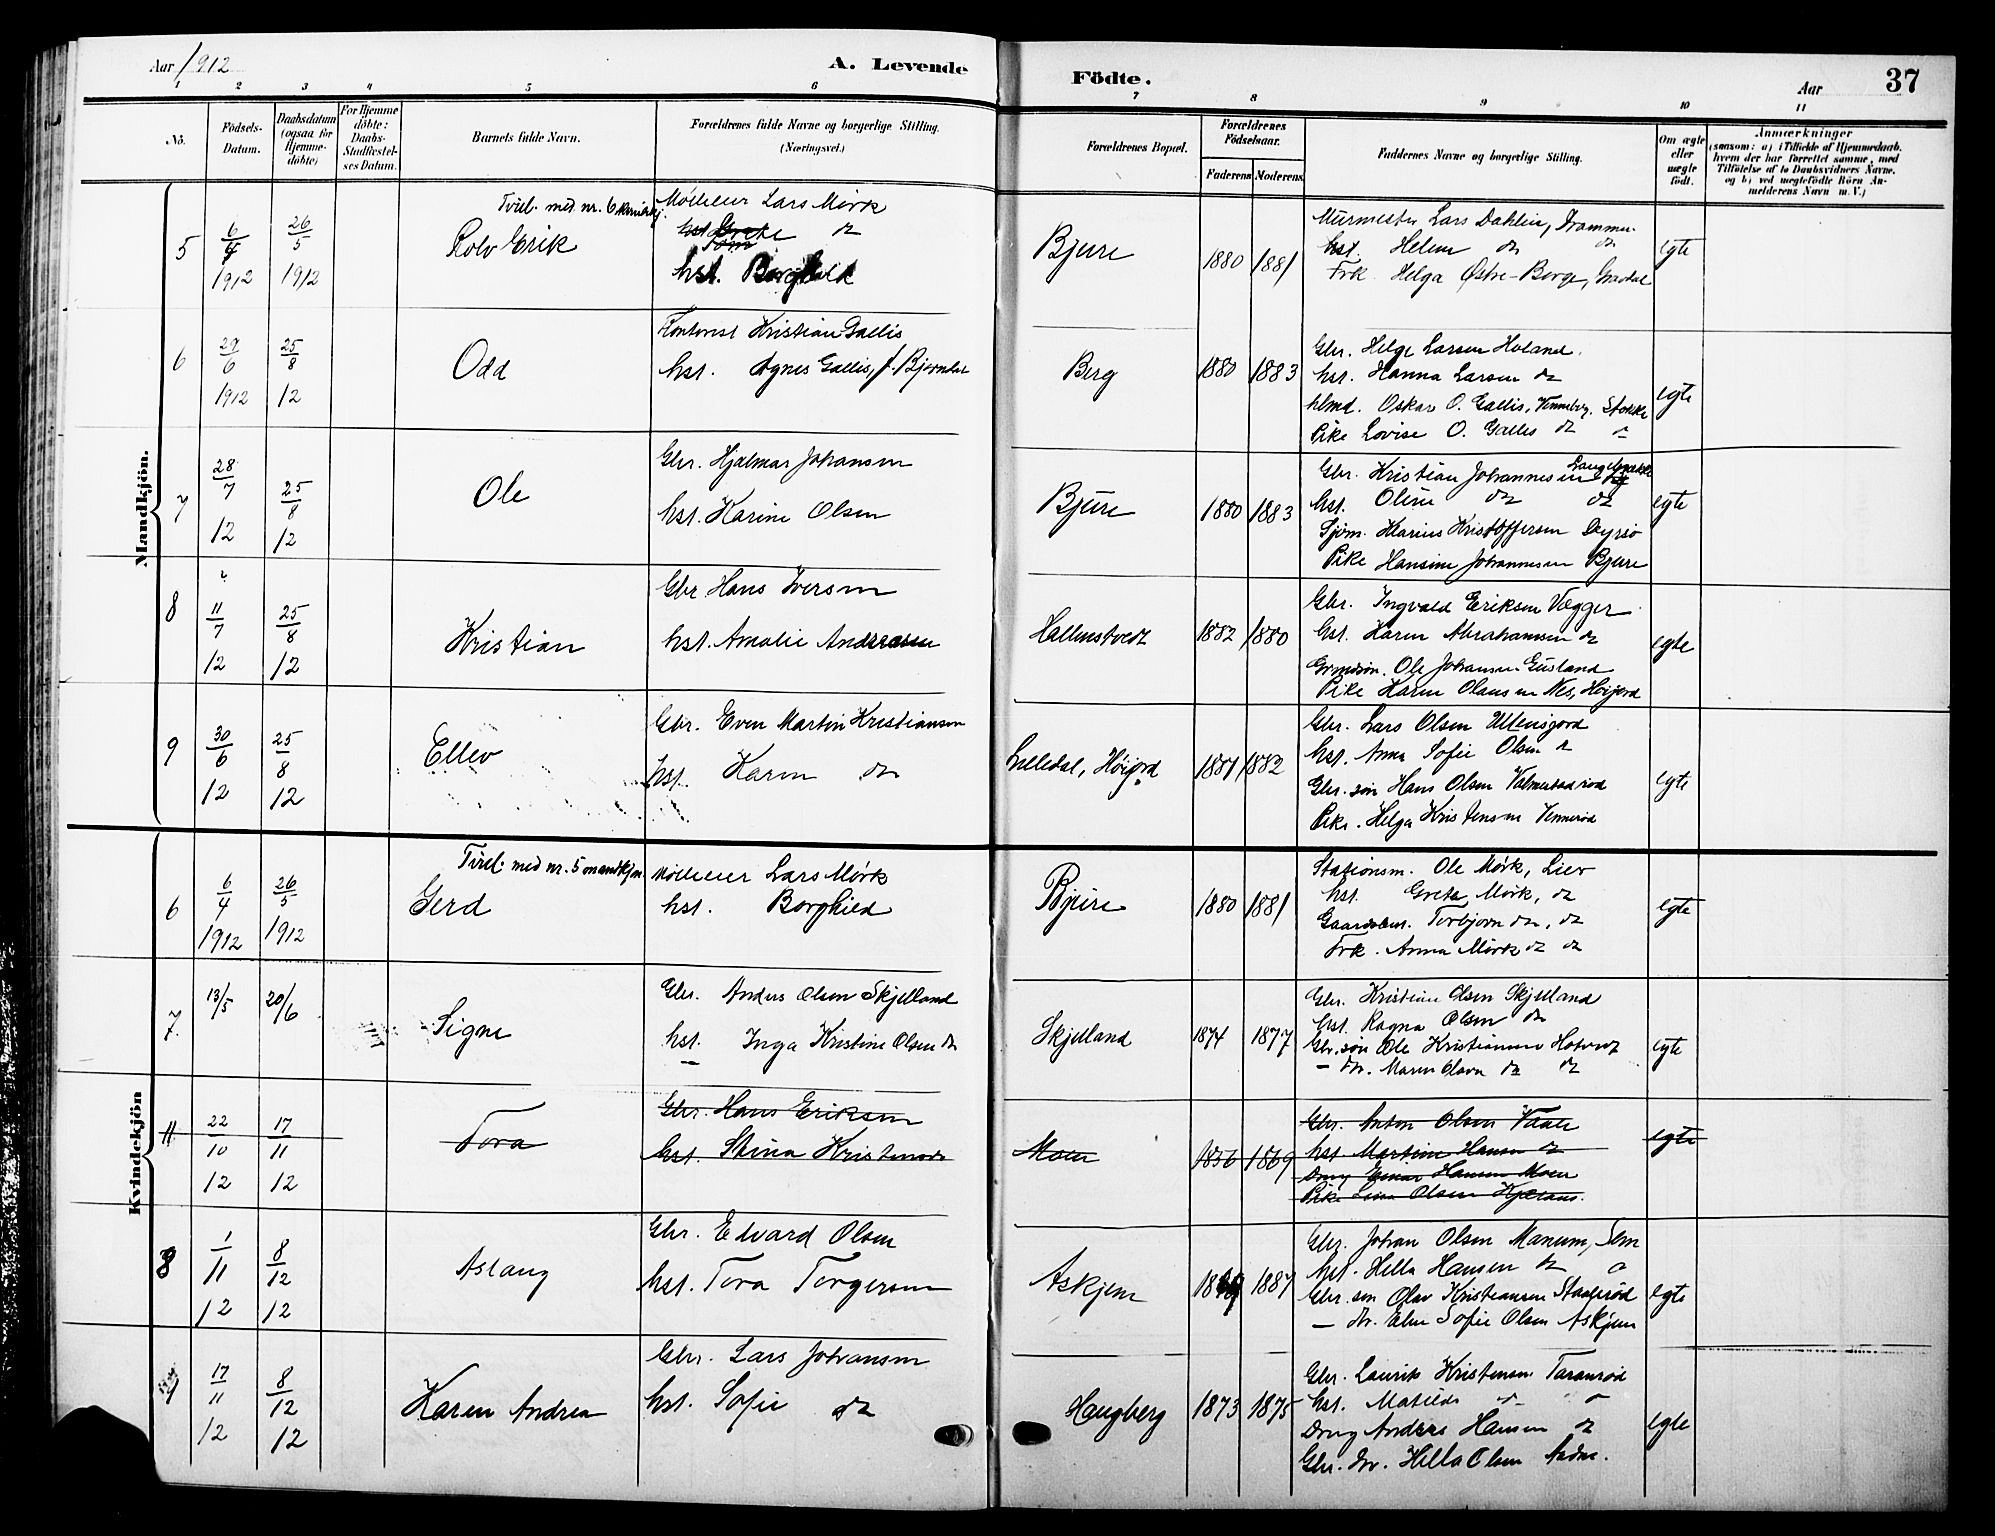 Aar 1912
A. Levende
Födte.
Aar
37
1 2 3 4 5 6 7 8 9 10 11
No.
Födsels-Datum.
Daabsdatum (ogsaa for Hjemme-döbte)
For Hjemme döbte: Daabs-Stadfæstel-ses Datum.
Barnets fulde Navn.
Forældrenes fulde Navne og borgerlige Stilling. (Næringsvei.)
Forældrenes Bopæl.
Forældrenes Födselsaar.
Faderens Moderens
Faddernes Navne og borgerlige Stilling.
Om ægte eller uægte födt.
Anmærkninger
(saasom: a) i Tilfælde af Hjemmedaab, hvem der har forrettet samme, med Tilföielse af to Daabsvidners Navne, og b) ved uegtefödte Börn Anmelderens Navn m. V.)
Mandkjön.
5 6/4 1912 26/5 1912
Tvil. med nr. 6
Rolv Erik
Lars Mörk
hst. Borghild
Bjure 1880 1881
Murmester Lars Dahlin, Drammen
hst. Helene do do
Frk Helga Østre-Borge,
egte
6 29/6 1912 25/8 12
Odd
Kontorist Kristian Gallis
hst. Agnes Gallis, f. Bjørndal
Berg 1880 1883
Gbr. Helge Larsen Holand.
hst. Hanna Larsen do
Oskar O. Gallis, Stokke
Pike Lovise O. Gallis do
egte
7 28/7 12 25/8 12
Ole
Gbr. Hjalmar Johansen
hst. Karine Olsen
Bjure 1880 1883
Gbr. Kristian Johannesen
hst. Oline do do
Sjöm. Marius Kristoffersen
Pike Hansine Johannesen Bjure
egte
8 11/7 12 25/8 12
Kristian
Gbr Hans Iversen
hst. Amalie Andreasen
Hallenstvedt 1882 1880
Gbr. Ingvald Eriksen Vægger
hst. Karen Abrahamsen do
Ole Johansen
Pike Karen Olausen Nes, Höijord
egte
9 30/6 12 25/8 12
Ellev
Gbr. Even Martin Kristiansen
hst. Karen do
Lilledal, Höijord 1881 1882
Gbr. Lars Olsen
hst. Anna Sofie Olsen do
Gbr. søn Hans Olsen
Pike. Helga Kristensen Vennerød
egte
Kvindekjön
6 6/4 1912 26/5 1912
Tvil. med nr. 5 mandkjøn
Gerd
Lars Mørk
hst. Borghild
Bjure 1880 1881
Stationsm. Ole Mørk, Lier
hst. Grete Mørk, do
Torbjørn do, do
Frk. Anna Mørk do do
egte
7. 13/5 20/6
Signe
Gbr. Anders Olsen Skjelland
hst. Inga Kristine Olsen do
Skjelland 1874 1877
Gbr. Kristian Olsen Skjelland
hst. Ragna Olsen do
Gbr. søn Ole Kristiansen
– dtr. Maren Olsen do do
egte
11 22/10 12 17/11 12
Tora
Gbr. Hans Eriksen
hst. Stina Kristensen
Moen 1856 1869
Gbr. Anton Olsen Vaale
hst Martine Hansen do
Dreng Einar Hansen Moen
Pike Lina Olsen
egte
8 1/11 12 8/12 12
Aslaug
Gbr. Edvard Olsen
hst. Tora Torgersen
Askjem 1887
Gbr. Johan Olsen Manum, Sem
hst. Hella Hansen do
Gbr. søn Olav Kristiansen
– dtr. Sofie Olsen Askjem
egte
9 17/11 12 8/12 12
Karen Andrea
Gbr. Lars Johansen
hst. Sofie do
Haugberg 1873 1875
Gbr. Laurits Kristensen Taranrød
hst. Matilde
Dreng Anders Hansen do
Gbr. dtr. Hella Olsen
egte